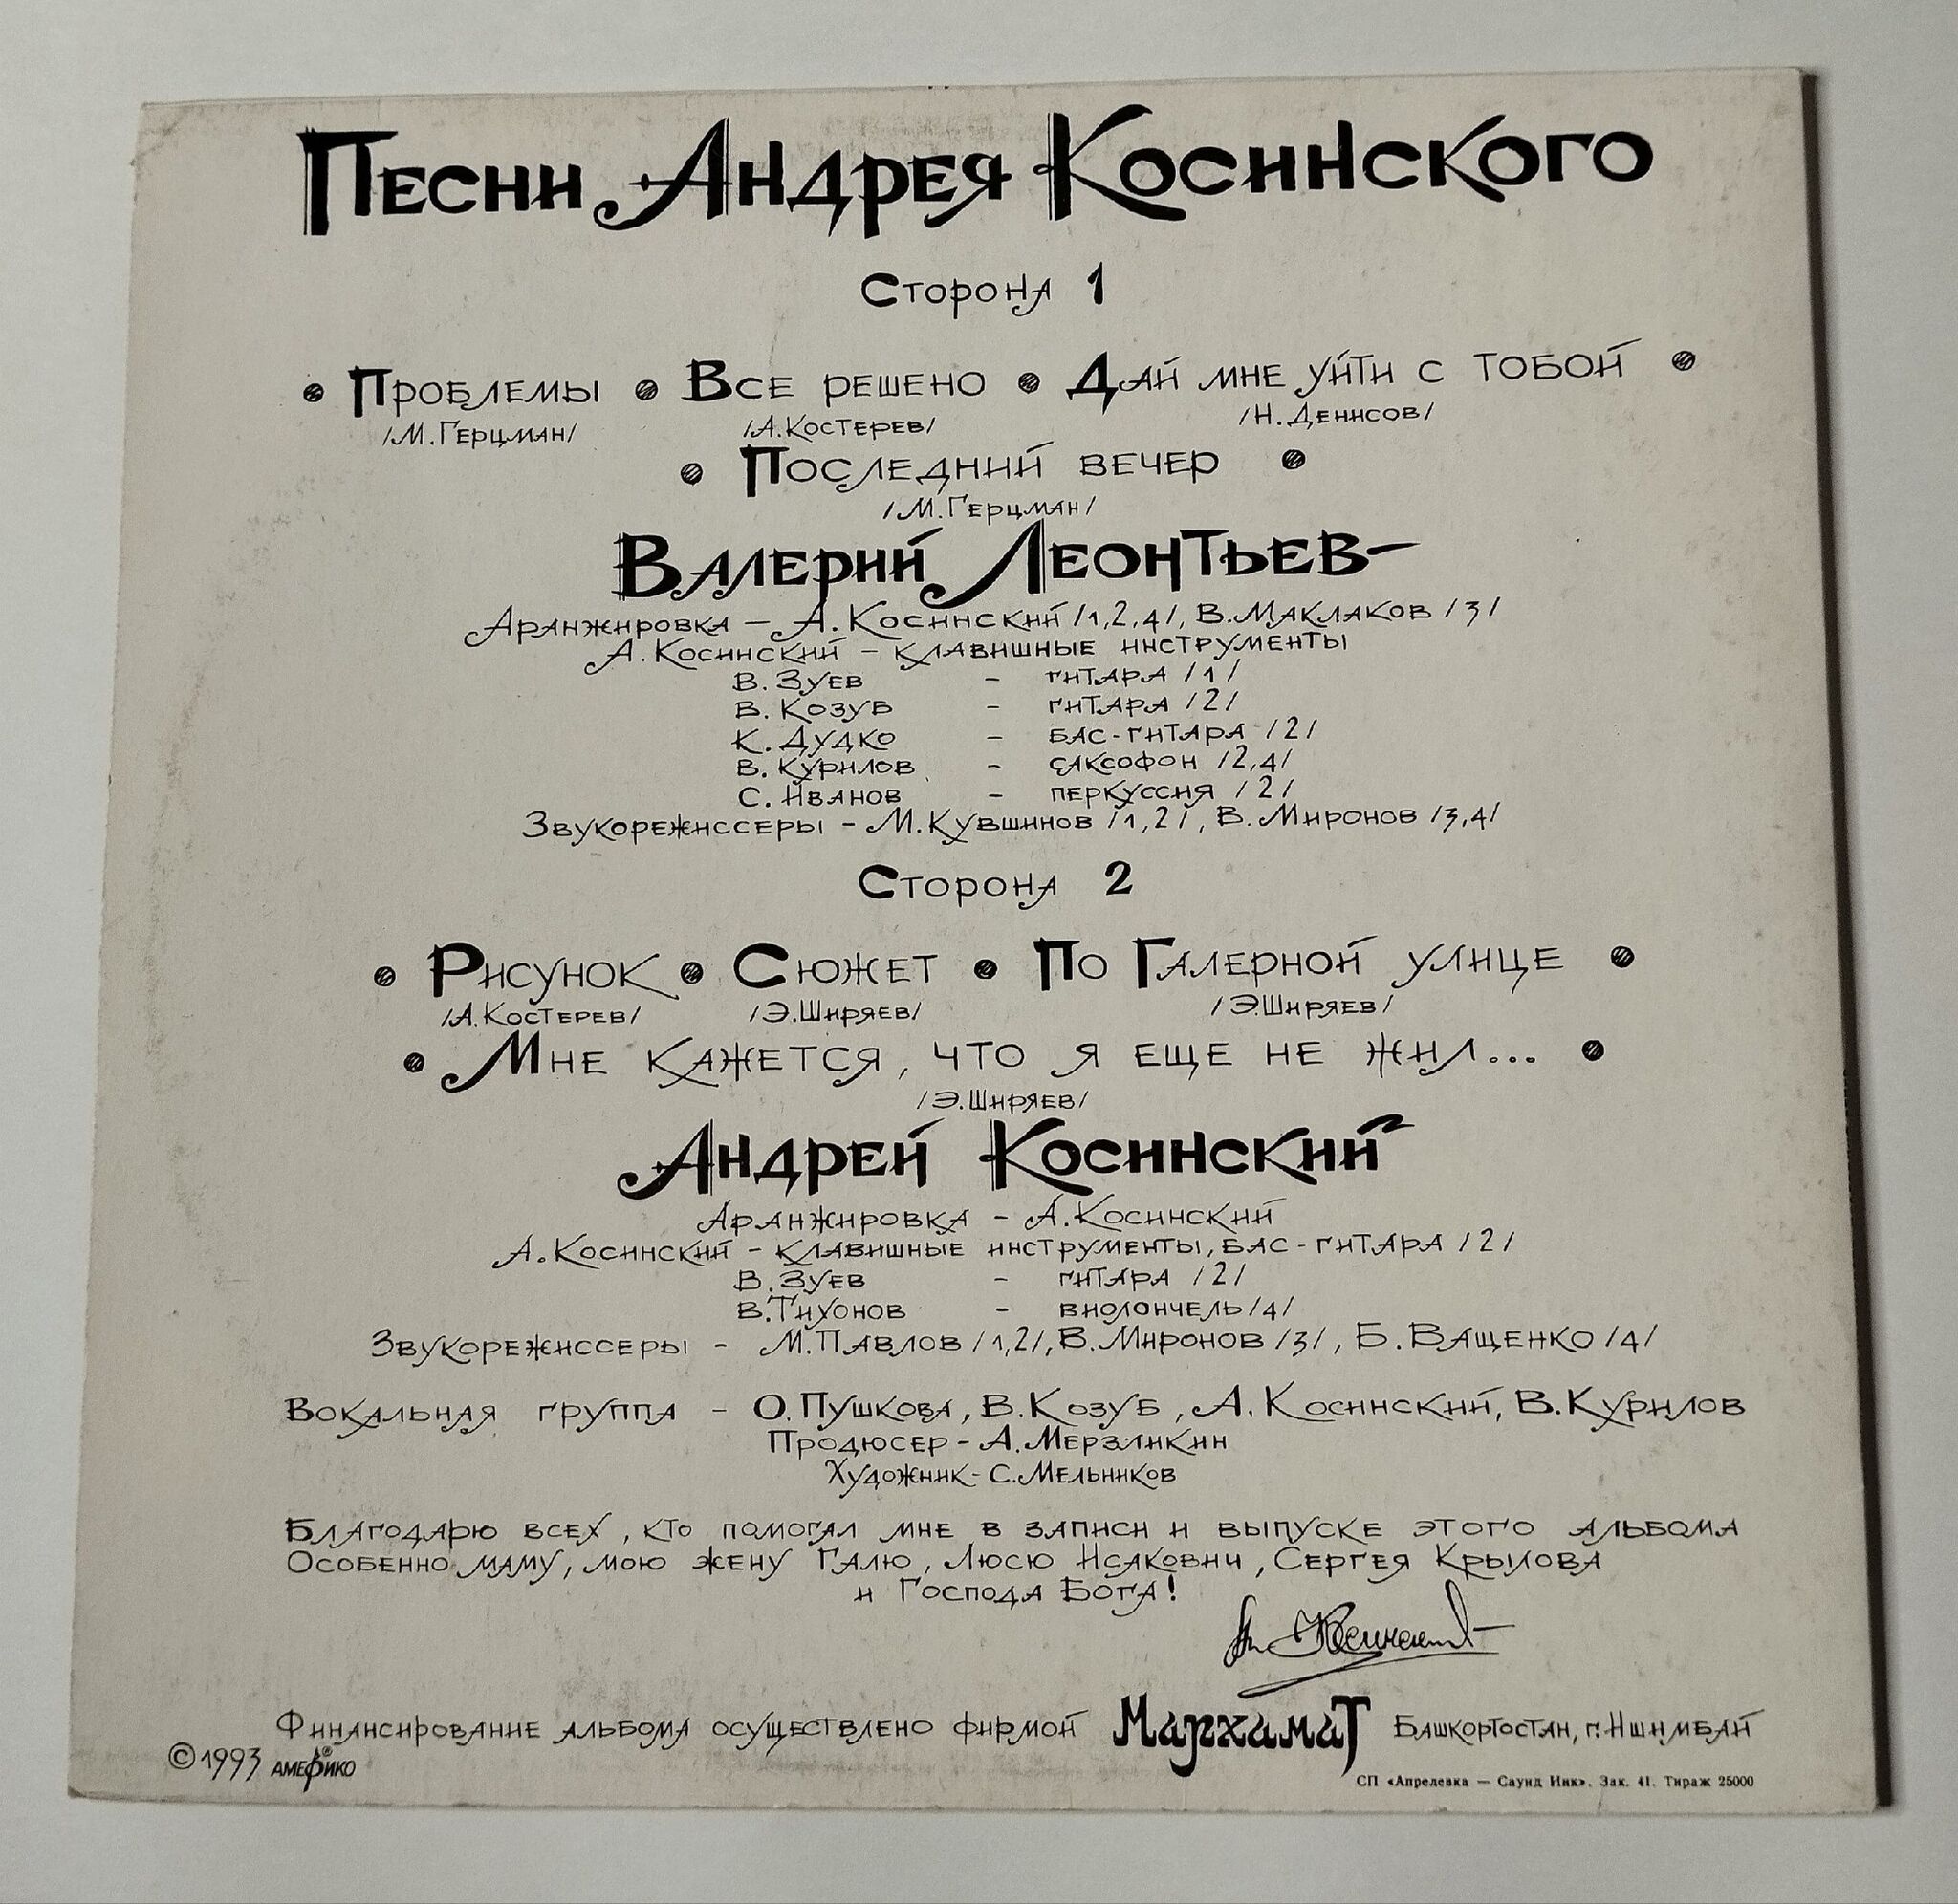 Песни Андрея Косинского
Сторона 1
Проблемы Все решено Дай мне уйти с тобой
/М.Герцман/ /А.Костерев/ /Н.Денисов/
Последний вечер
/М.Герцман/
Валерий Леонтьев
Аранжировка – А.Косинский /1,2,4/, В.Маклаков /3/
А.Косинский – клавишные инструменты
В.Зуев – гитара /1/
В.Козуб – гитара /2/
К.Дудко – бас-гитара /2/
В.Курилов – саксофон /2,4/
С.Иванов – перкуссия /2/
Звукорежиссеры – М.Кувшинов /1,2/, В.Миронов /3,4/
Сторона 2
Рисунок Сюжет По Галерной улице
/А.Костерев/ /Э.Ширяев/ /Э.Ширяев/
Мне кажется, что я еще не жил...
/Э.Ширяев/
Андрей Косинский
Аранжировка – А.Косинский
А.Косинский – клавишные инструменты, бас-гитара /2/
В.Зуев – гитара /2/
В.Тихонов – виолончель /4/
Звукорежиссеры – М.Павлов /1,2/, В.Миронов /3/, Б.Ващенко /4/
Вокальная группа – О.Пушкова, В.Козуб, А.Косинский, В.Курилов
Продюсер – А.Мерзликин
Художник – С.Мельников
Благодарю всех, кто помогал мне в записи и выпуске этого альбома
Особенно маму, мою жену Галю, Люсю Исакович, Сергея Крылова
и Господа Бога!
Ан Косинский
Финансирование альбома осуществлено фирмой Мархамат Башкортостан, г.Ишимбай
©1993 Америко®
СП «Апрелевка — Саунд Инк». Зак. 41. Тираж 25000